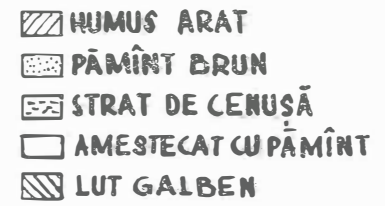 HUMUS ARAT
PĂMÎNT BRUN
STRAT DE CENUȘĂ
AMESTECAT CU PĂMÎNT
LUT GALBEN